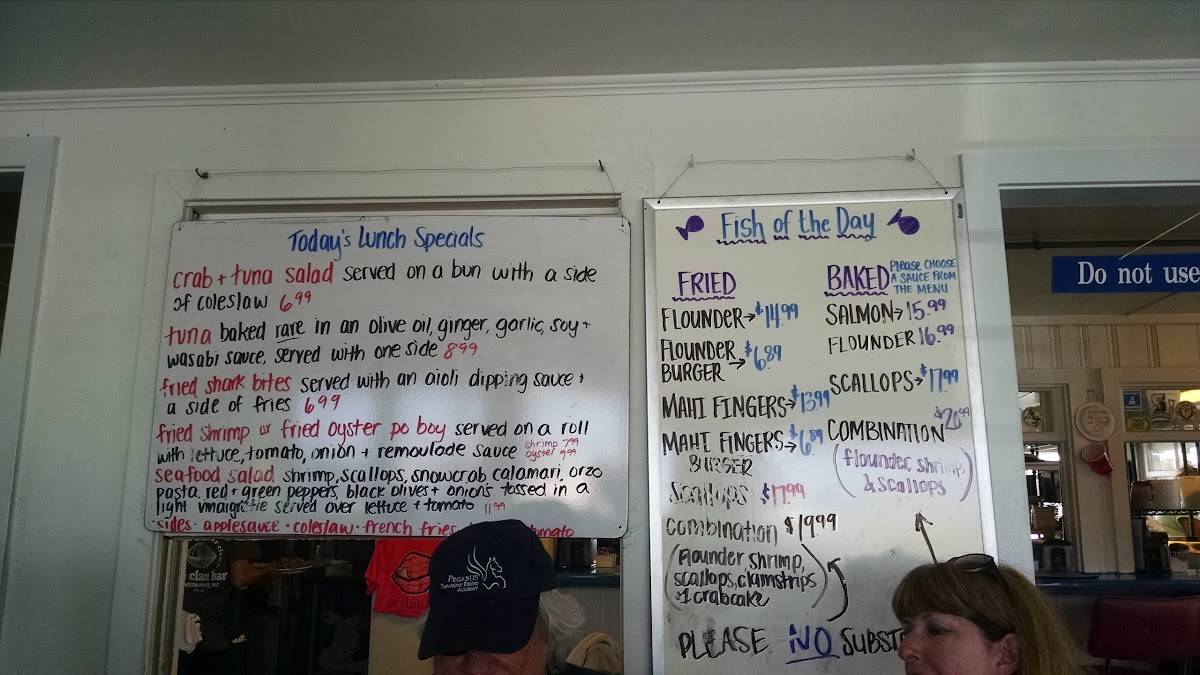 Today's Lunch Specials
crab + tuna salad served on a bun with a side
of coleslaw 6.99
tuna baked rare in an olive oil, ginger, garlic, soy +
wasabi sauce, served with one side 8.99
fried shark bites served with an aioli dipping sauce +
a side of fries 6.99
fried shrimp or fried oyster po boy served on a roll
with lettuce, tomato, onion + remoulade sauce shrimp 7.99
oyster 9.99
seafood salad shrimp, scallops, snowcrab, calamari, orzo
pasta, red + green peppers, black olives + onions tossed in a
light vinaigrette served over lettuce + tomato 11.99
sides · applesauce · coleslaw · french fries
tomato
Fish of the Day
FRIED
FLOUNDER→$14.99
FLOUNDER
BURGER →$6.89
MAHI FINGERS→$13.99
MAHI FINGERS→$6.89
BURGER
Scallops $17.99
combination $19.99
(flounder, shrimp,
scallops, clamstrips
+1 crabcake)
BAKED Please CHOOSE
A SAUCE FROM
THE MENU
SALMON→15.99
FLOUNDER 16.99
SCALLOPS→$17.99
$20.99
COMBINATION
(flounder, shrimp,
& scallops)
PLEASE NO SUBST
Do not use
PEGASUS
THERAPEUTIC RIDING
ACADEMY
the clam bar
the clam